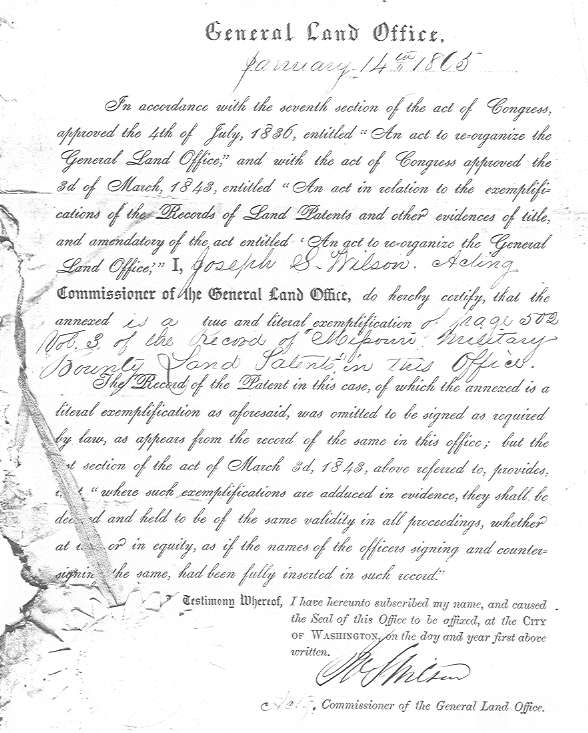 General Land Office.
January 14th 1865
In accordance with the seventh section of the act of Congress,
approved the 4th of July, 1836, entitled "An act to re-organize the
General Land Office," and with the act of Congress approved the
3d of March, 1843, entitled "An act in relation to the exemplifi-
cations of the Records of Land Patents and other evidences of title,
and amendatory of the act entitled 'An act to re-organize the General
Land Office;" I, Joseph S. Wilson. Acting
Commissioner of the General Land Office, do hereby certify, that the
annexed is a true and literal exemplification of page 502
Vol. 3 of the Record of Missouri Military
Bounty Land Patents in this Office.
The Record of the Patent in this case, of which the annexed is a
literal exemplification as aforesaid, was omitted to be signed as required
by law, as appears from the record of the same in this office; but the
section of the act of March 3d, 1843, above referred to, provides,
"where such exemplifications are adduced in evidence, they shall be
and held to be of the same validity in all proceedings, whether
at or in equity, as if the names of the officers signing and counter-
signing the same, had been fully inserted in such record."
Testimony Whereof, I have hereunto subscribed my name, and caused
the Seal of this Office to be affixed, at the CITY
OF WASHINGTON, on the day and year first above
written.
Jos S Wilson
Actg. Commissioner of the General Land Office.